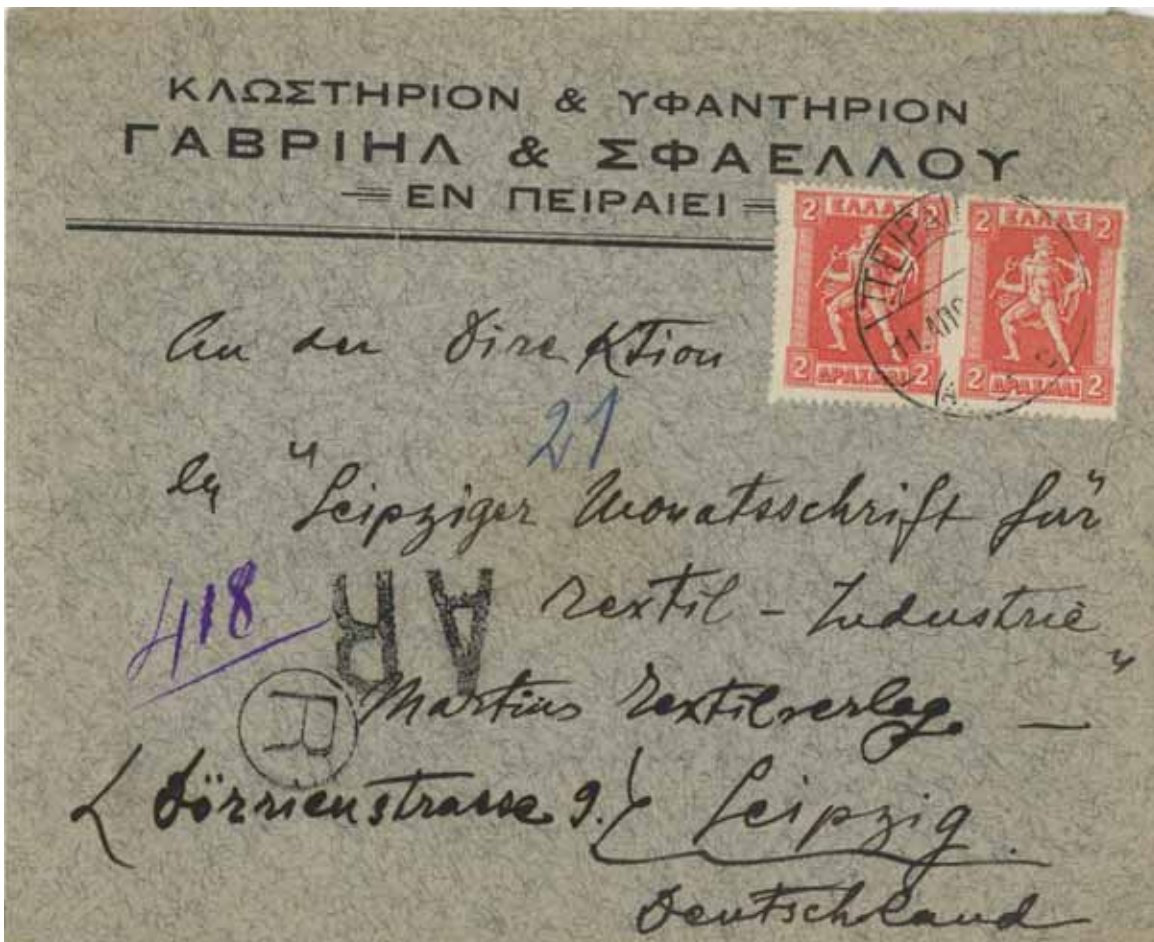 ΚΛΩΣΤΗΡΙΟΝ & ΥΦΑΝΤΗΡΙΟΝ
ΓΑΒΡΙΗΛ & ΣΦΑΕΛΛΟΥ
ΕΝ ΠΕΙΡΑΙΕΙ
2 ΕΛΛΑΣ 2
2 ΔΡΑΧΜΑΙ 2
2 ΕΛΛΑΣ 2
2 ΔΡΑΧΜΑΙ 2
ΠΕΙΡΑ
11. ΑΠΡ
An der Direktion
21
"Leipziger Monatsschrift für
Textil - Industrie"
418
AR
R
Martins Textilverlag —
(Dörrienstrasse 9.) Leipzig.
Deutschland